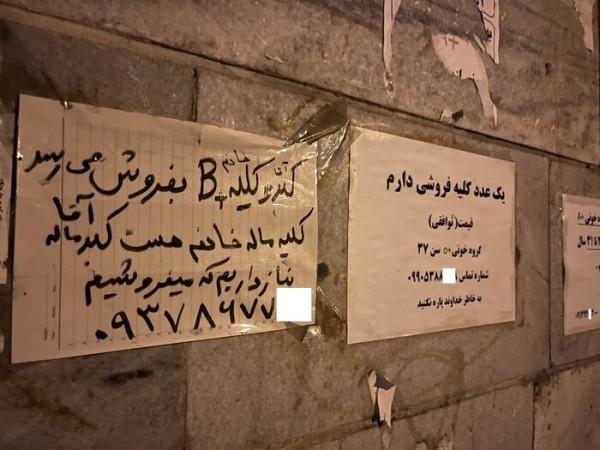 کبد و کلیه خانم B+ بفروش می رسد
کلیه ماله خانمه هست کبد ماله آقا
نیاز داریم که میفروشیم
۰۹۳۷۸۶۷۷
یک عدد کلیه فروشی دارم
قیمت(توافقی)
گروه خونی +o سن ۳۷
شماره تماس ۰۹۹۰۵۳۸۸
به خاطر خداوند پاره نکنید
خونی +A
سال